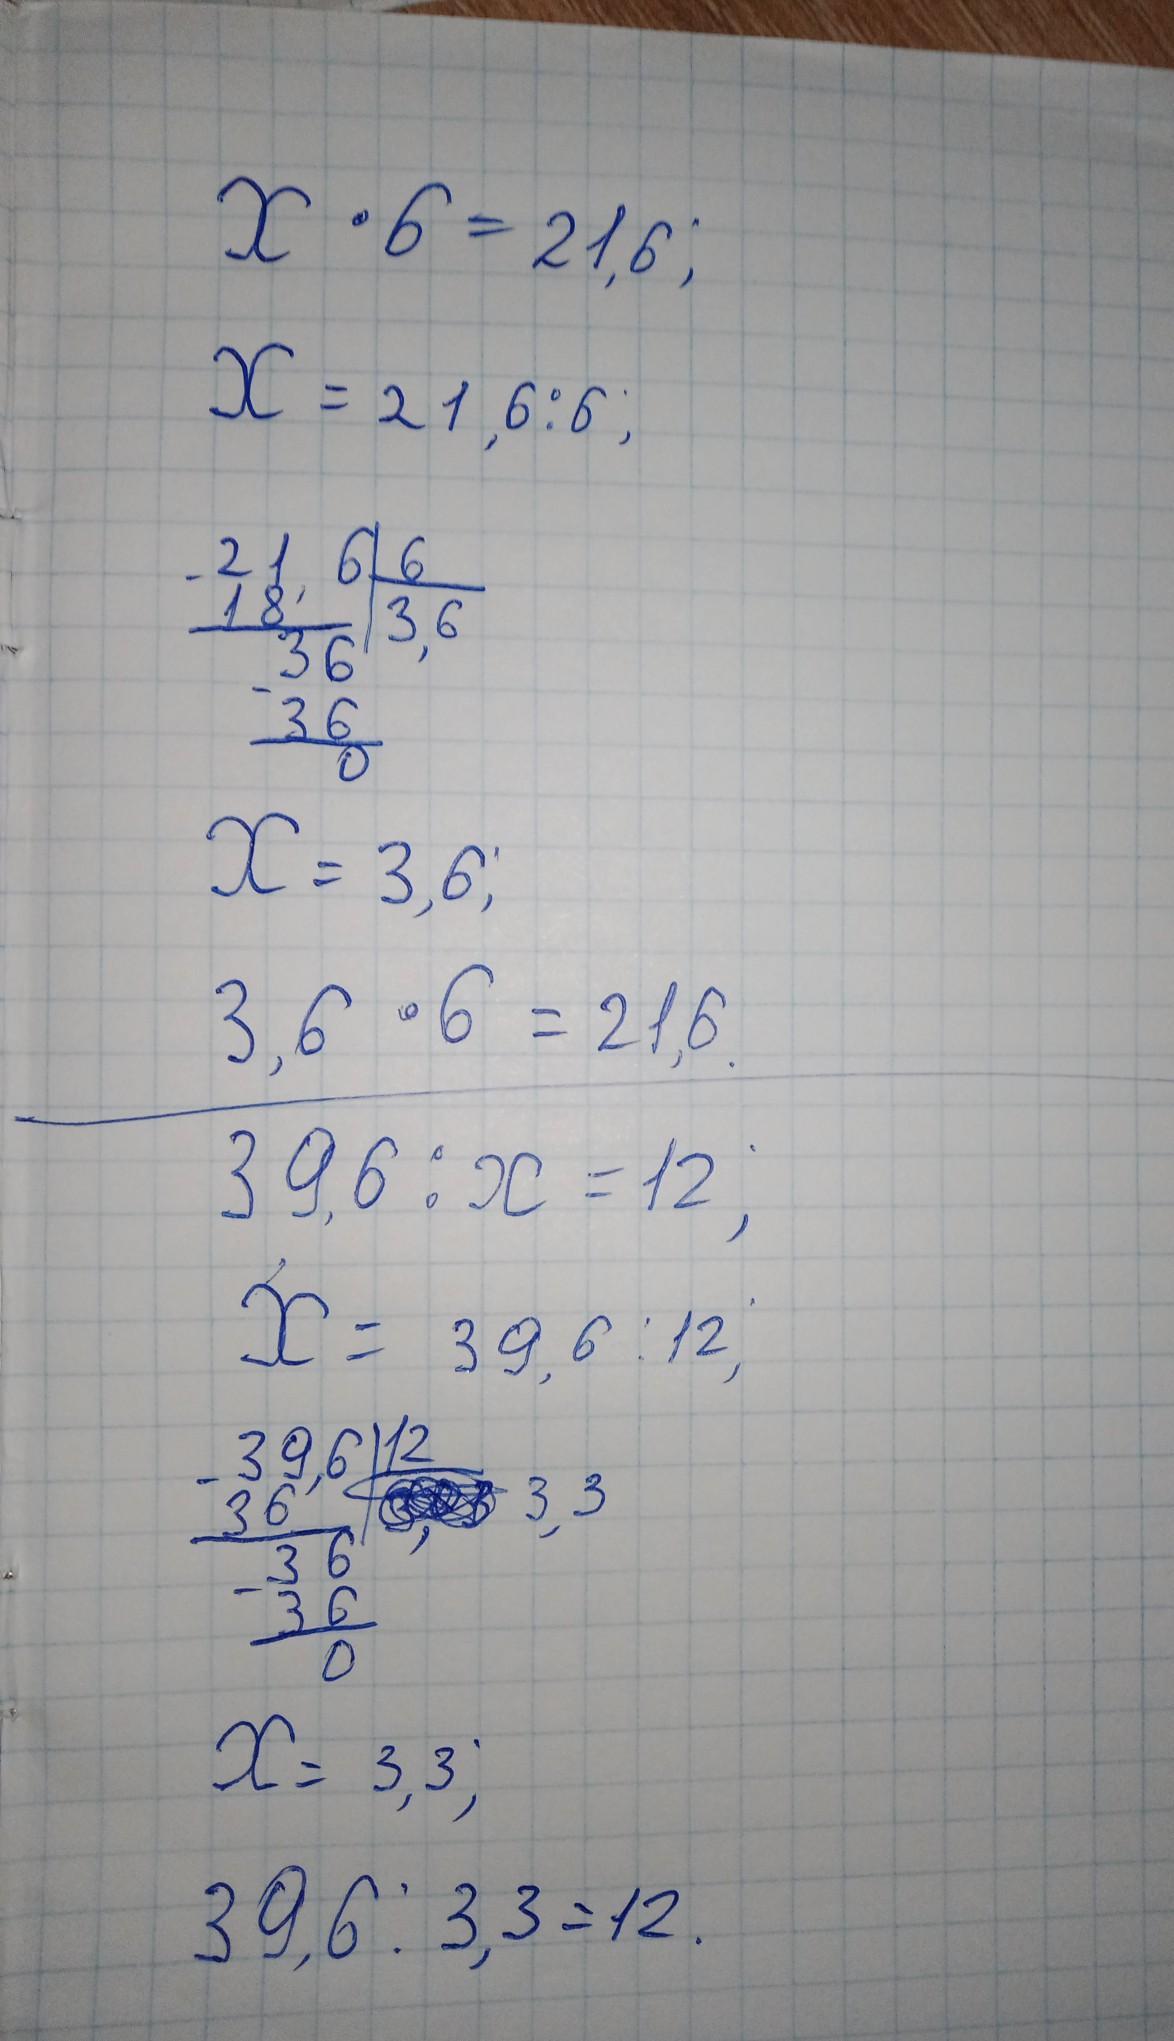 x · 6 = 21,6;
x = 21,6:6;
- 21,6 | 6
18 | 3,6
- 36
36
0
x = 3,6;
3,6 · 6 = 21,6.
39,6 : x = 12;
x = 39,6 : 12;
- 39,6 | 12
36 | 3,3
- 36
36
0
x = 3,3;
39,6 : 3,3 = 12.